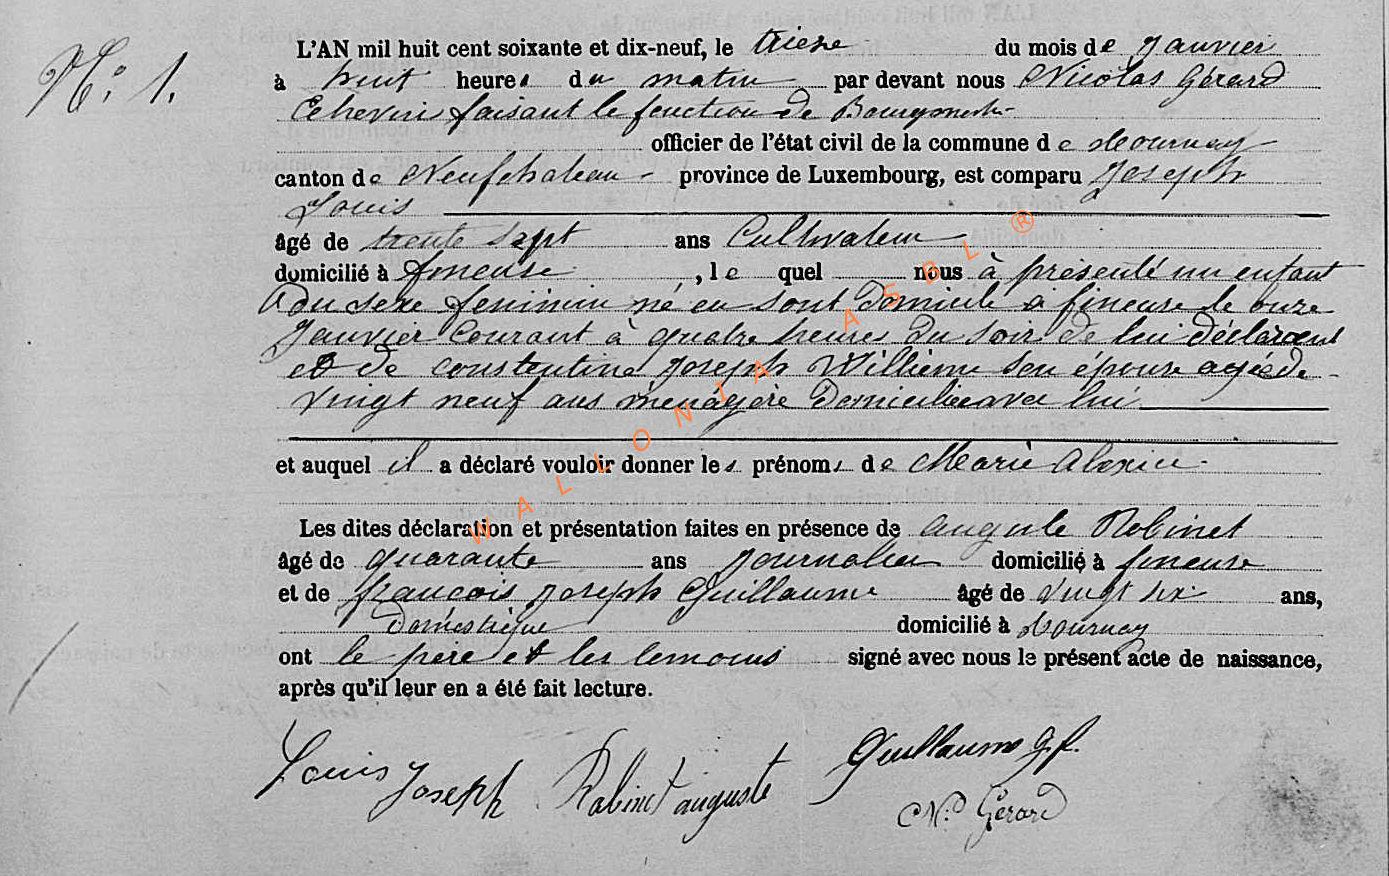 N° 1.
L'AN mil huit cent soixante et dix-neuf, le treize du mois de Janvier
à huit heures du matin par devant nous Nicolas Gérard
Echevin faisant le fonction de Bourgmestre
officier de l'état civil de la commune de Tournay
canton de Neufchateau province de Luxembourg, est comparu Joseph
Louis
âgé de trente sept ans Cultivateur
domicilié à fineuse, le quel nous à présenté un enfant
du sexe feminin né en sont domicile à fineuse le onze
Janvier Courant à quatre heures du soir de lui déclarant
et de constentine Joseph Willieme son épouse agée de
vingt neuf ans ménagère domiciliée avec lui
et auquel il a déclaré vouloir donner les prénoms de Marie Alexise
Les dites déclaration et présentation faites en présence de auguste Robinet
âgé de quarante ans journalier domicilié à fineuse
et de françois joseph Guillaume âgé de vingt six ans,
Domestique domicilié à Tournay
ont le père et les temoins signé avec nous le présent acte de naissance,
après qu'il leur en a été fait lecture.
Louis Joseph Robinet auguste Guillaume J f.
N. Gérard
WALLONIA ASBL ®